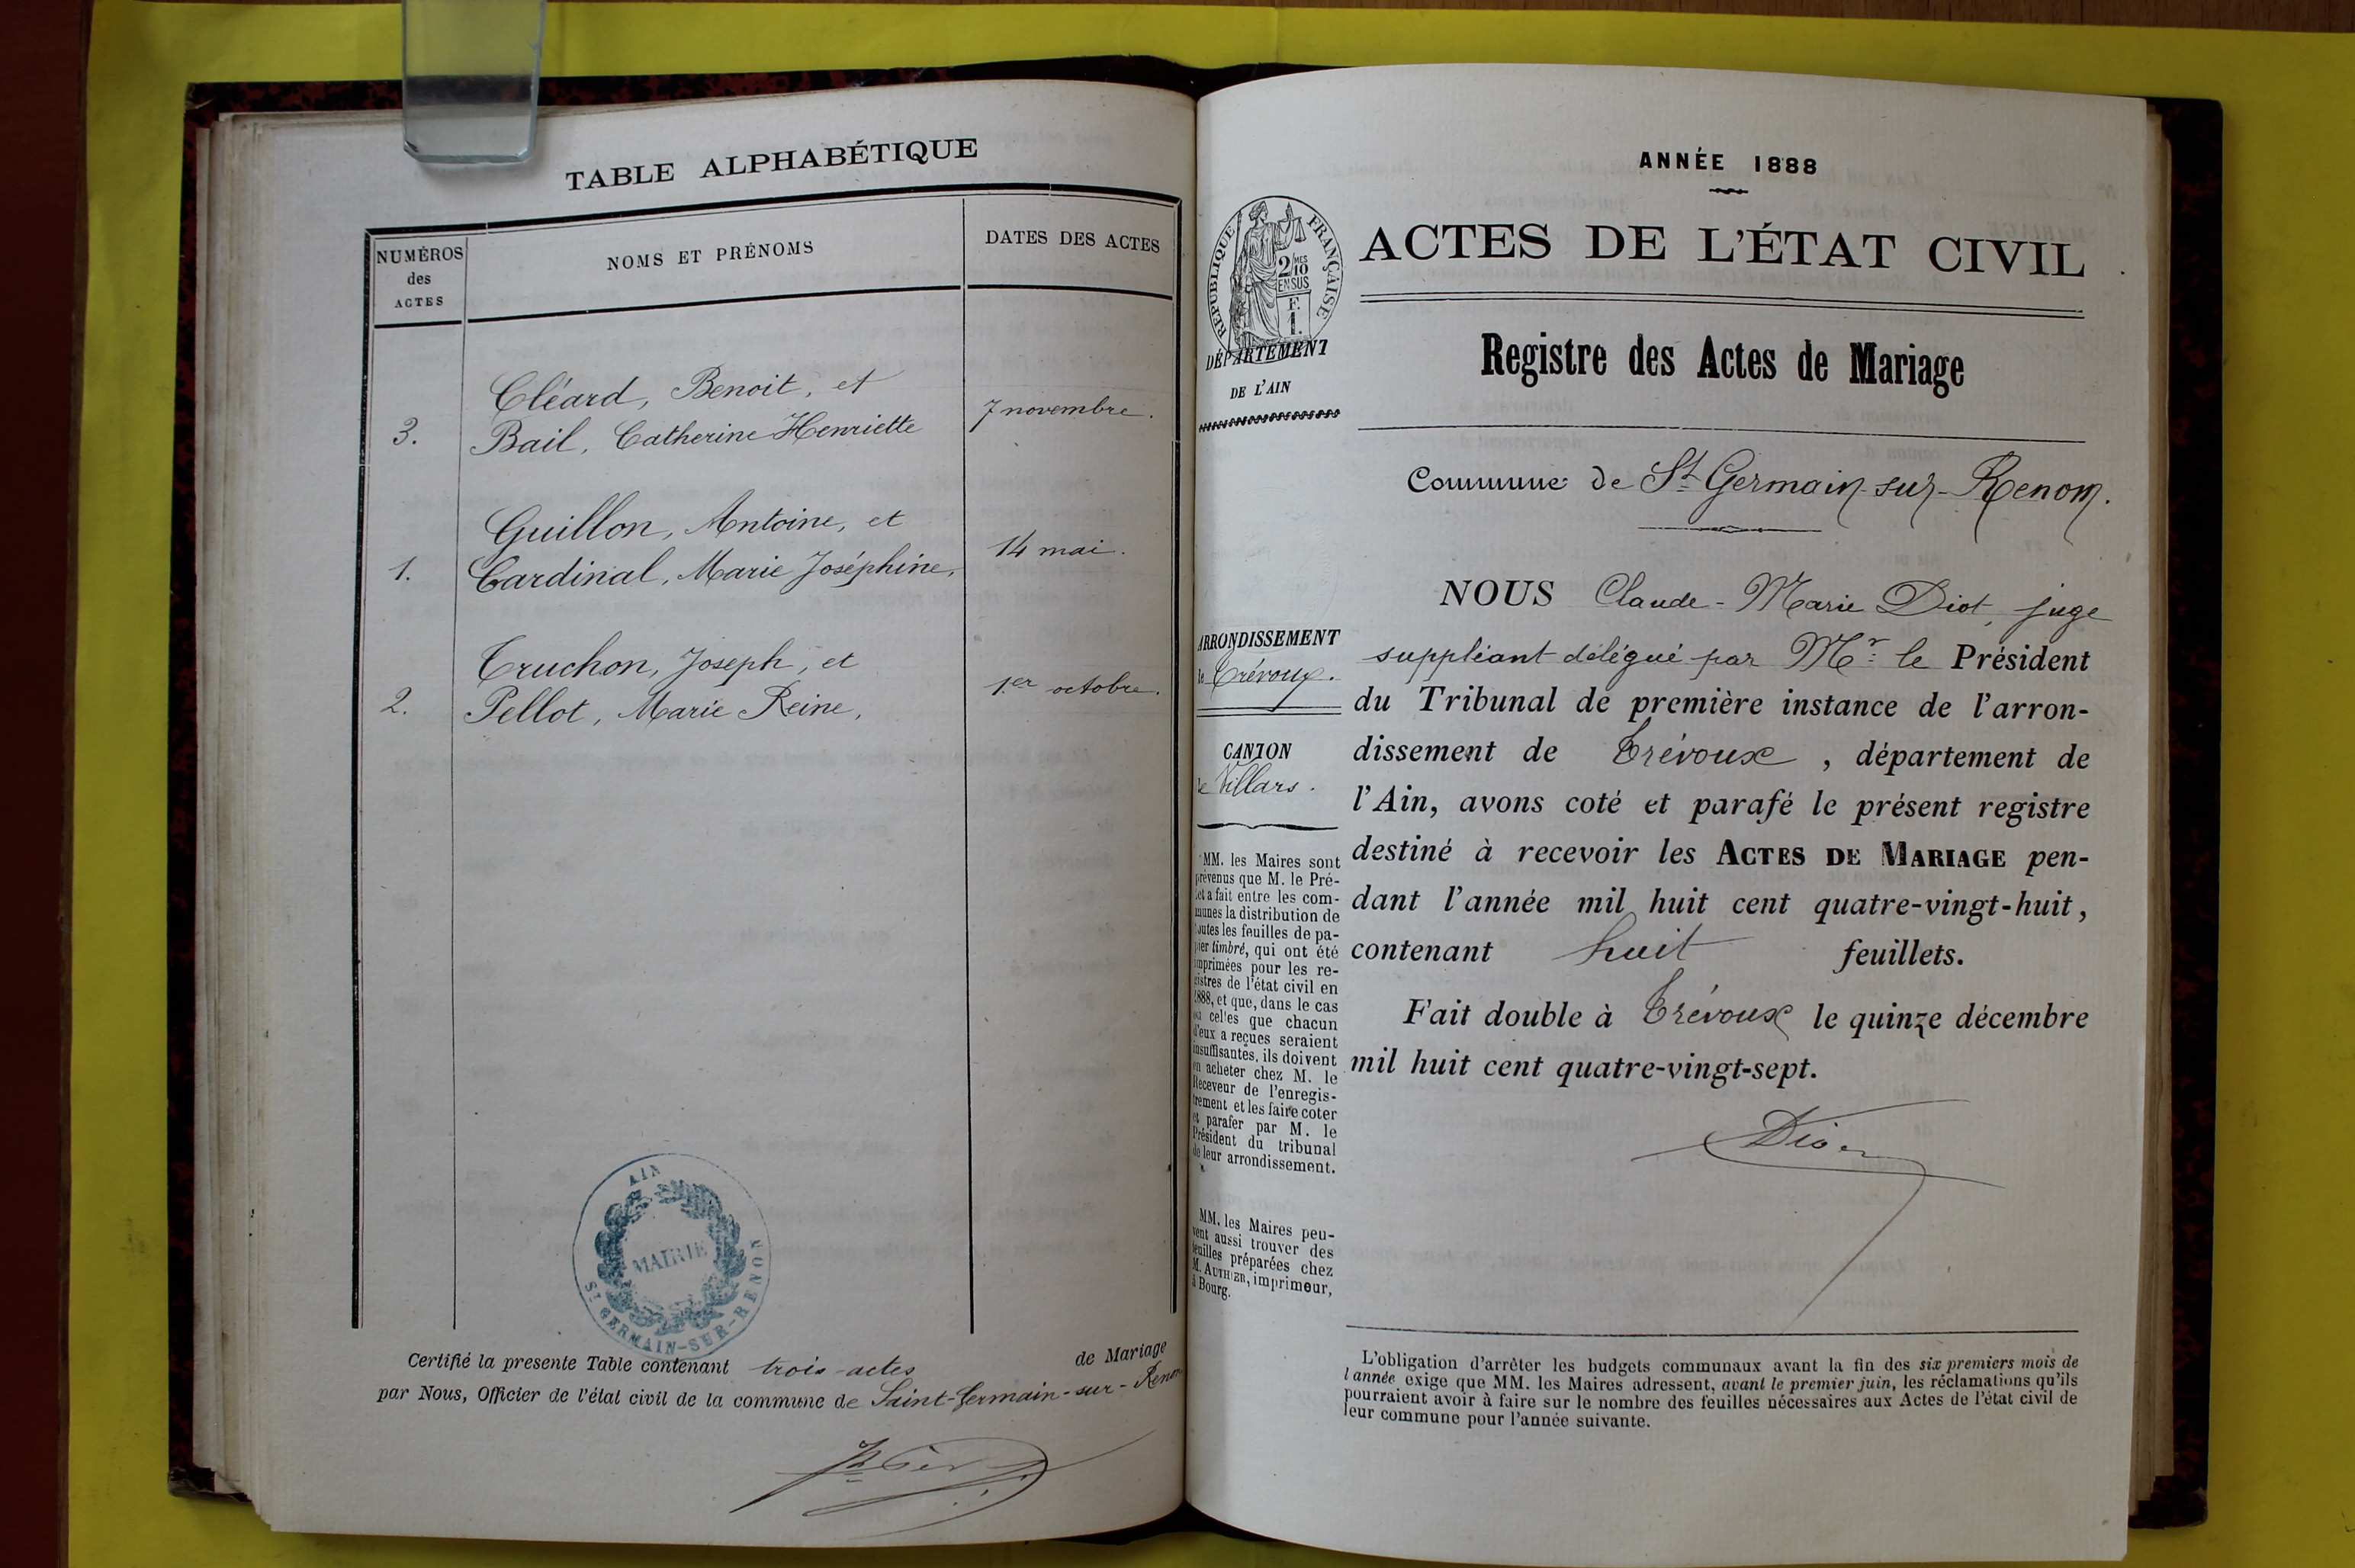 TABLE ALPHABÉTIQUE
NUMÉROS
des
ACTES
NOMS ET PRÉNOMS
DATES DES ACTES
Cléard, Benoit, et
3. Bail, Catherine Henriette 7 novembre.
Guillon, Antoine, et
1. Cardinal, Marie Joséphine, 14 mai.
Truchon, Joseph, et
2. Pellot, Marie Reine, 1er octobre.
AIN
MAIRIE
ST GERMAIN-SUR-RENON
Certifié la presente Table contenant trois actes de Mariage
par Nous, Officier de l'état civil de la commune de Saint-Germain-sur-Renon
ANNÉE 1888
ACTES DE L'ÉTAT CIVIL
RÉPUBLIQUE FRANÇAISE
2/10 MES
EN SUS
F.
1.
DÉPARTEMENT
DE L'AIN
Registre des Actes de Mariage
Commune de St Germain-sur-Renom.
ARRONDISSEMENT
de Trévoux.
CANTON
de Villars.
MM. les Maires sont
prévenus que M. le Pré-
fet a fait entre les com-
munes la distribution de
toutes les feuilles de pa-
pier timbré, qui ont été
imprimées pour les re-
gistres de l'état civil en
1888, et que, dans le cas
où celles que chacun
d'eux a reçues seraient
insuffisantes, ils doivent
en acheter chez M. le
Receveur de l'enregis-
trement et les faire coter
et parafer par M. le
Président du tribunal
de leur arrondissement.
MM. les Maires peu-
vent aussi trouver des
feuilles préparées chez
M. AUTHIER, imprimeur,
à Bourg.
NOUS Claude-Marie Diot, juge
suppléant délégué par Mr le Président
du Tribunal de première instance de l'arron-
dissement de Trévoux, département de
l'Ain, avons coté et parafé le présent registre
destiné à recevoir les ACTES DE MARIAGE pen-
dant l'année mil huit cent quatre-vingt-huit,
contenant huit feuillets.
Fait double à Trévoux le quinze décembre
mil huit cent quatre-vingt-sept.
L'obligation d'arrêter les budgets communaux avant la fin des six premiers mois de
l'année exige que MM. les Maires adressent, avant le premier juin, les réclamations qu'ils
pourraient avoir à faire sur le nombre des feuilles nécessaires aux Actes de l'état civil de
leur commune pour l'année suivante.